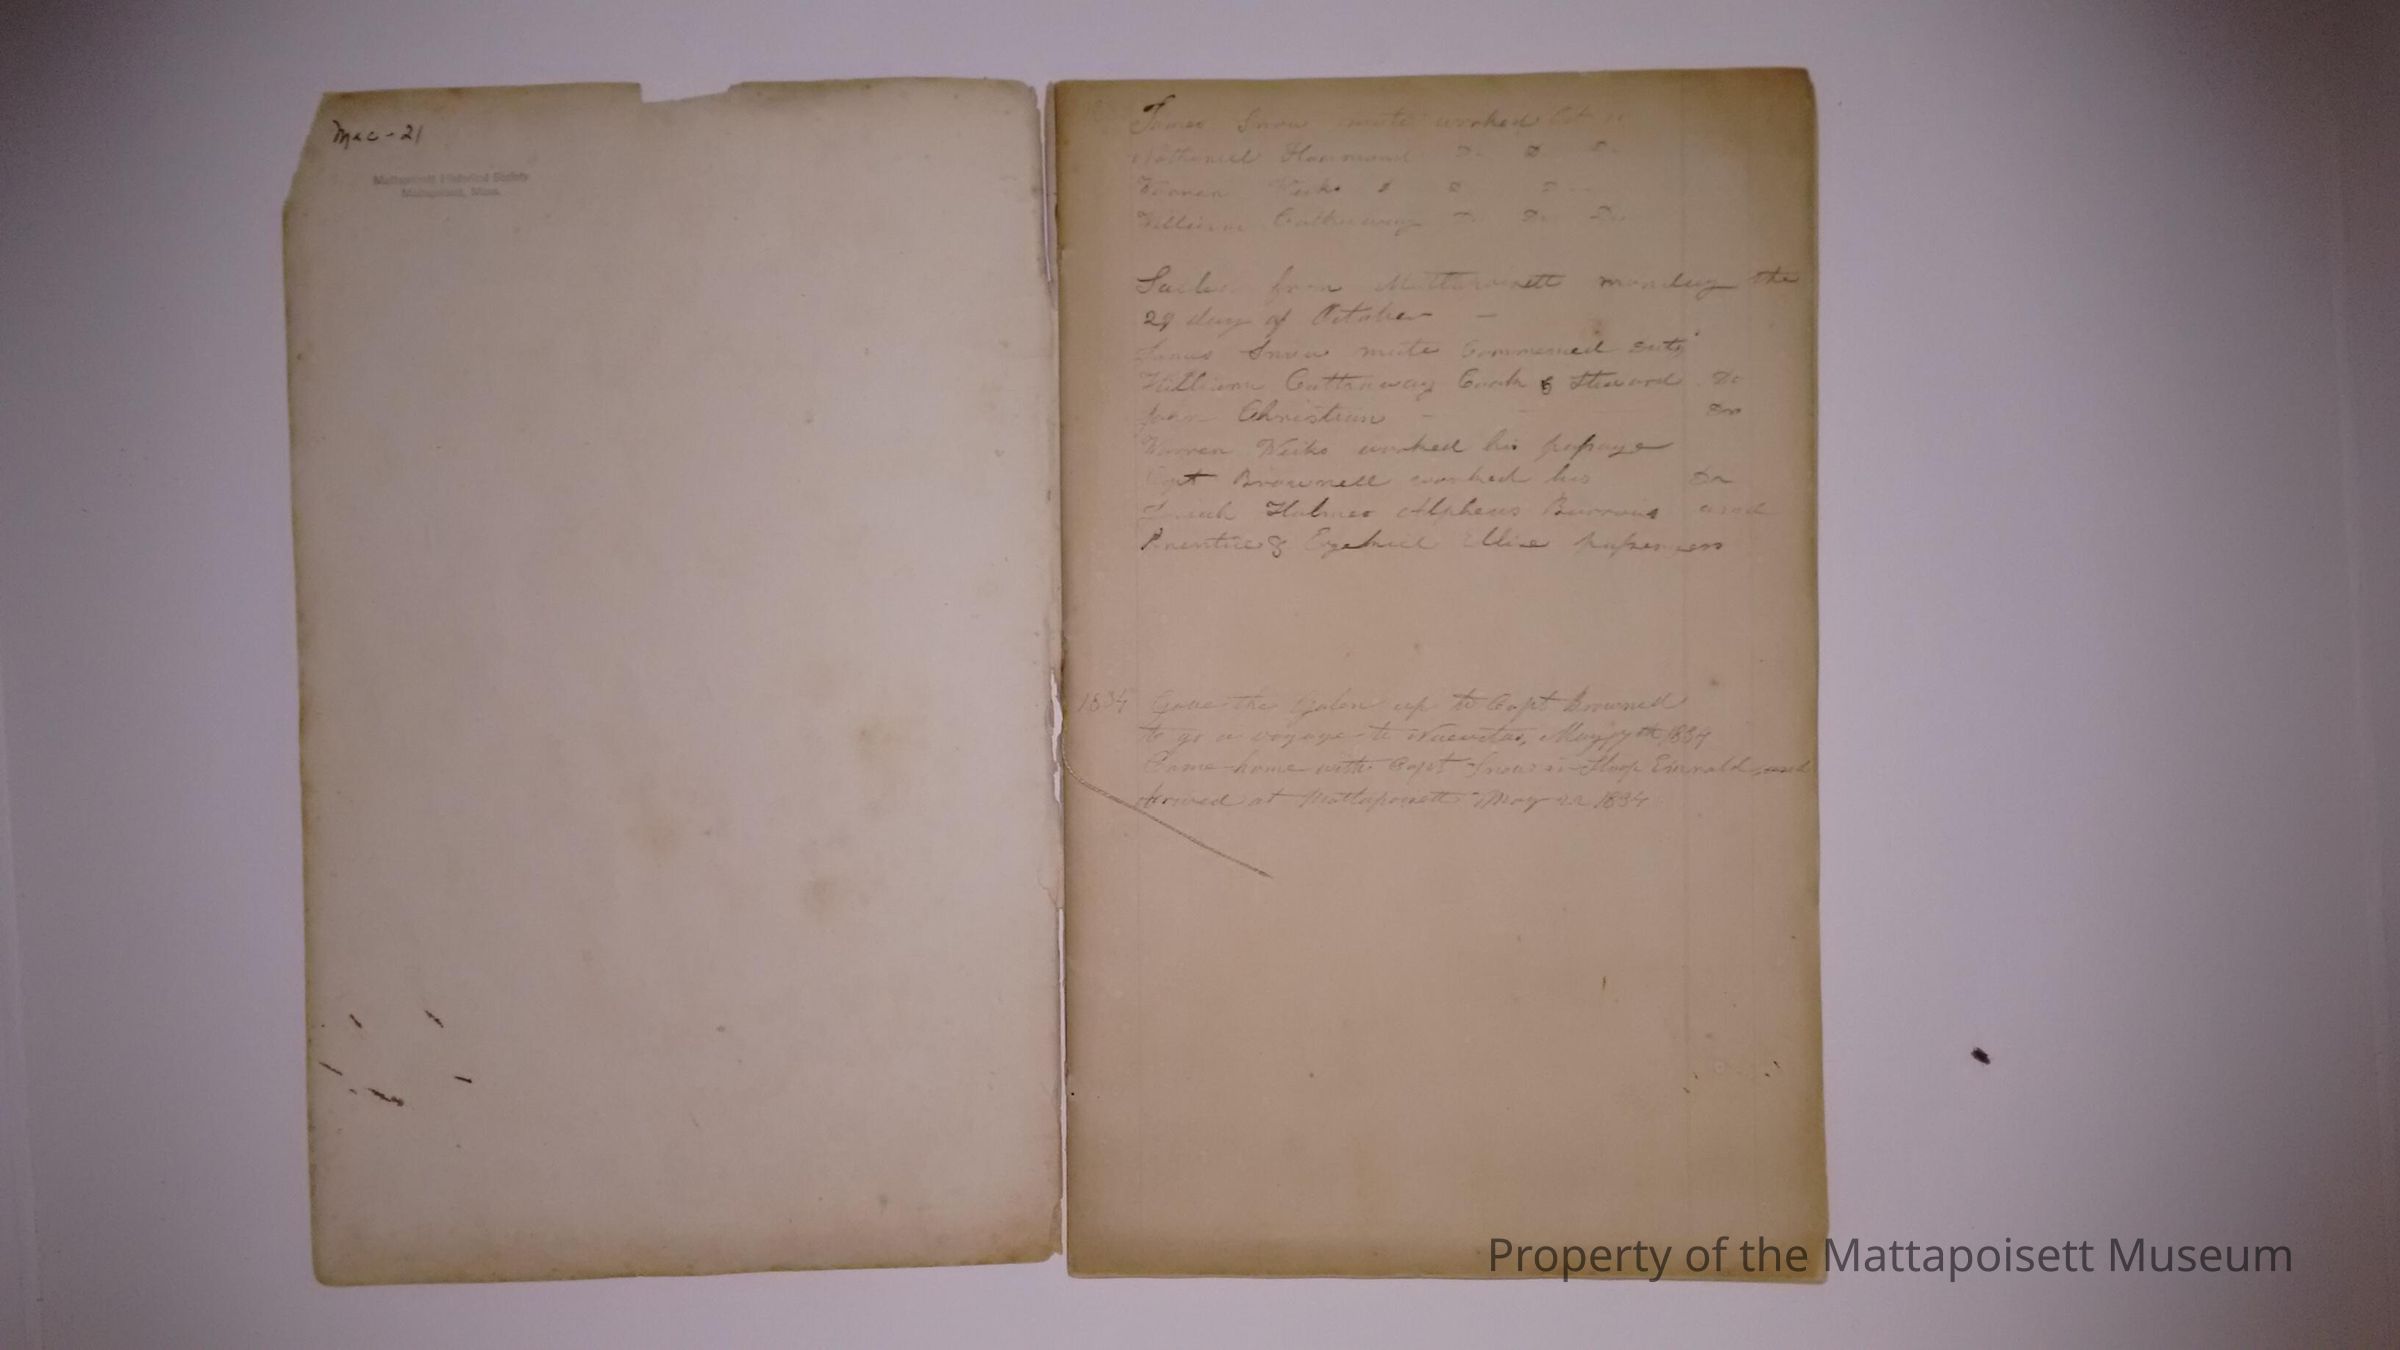 Mac-21
Mattapoisett Historical Society
Mattapoisett, Mass.
James Snow mate worked Oct
Nathaniel Hammond Do Do Do
Warren Weeks Do Do
William Cattaway Do Do Do
Sailed from Mattapoisett monday the
29 day of October –
James Snow mate Commenced duty
William Cattaway Cook & Steward Do
John Christian – – Do
Warren Weeks worked his passage
Capt Brownell worked his Do
Holmes Alpheus Burrows and
Prentice & Ezekiel Ellis passengers
1834 Gave the up to Capt Brownell
to go a voyage to Nuevitas, May 1834
Came home with Capt Snow in Sloop Emerald and
Arrived at Mattapoisett May 22 1834
Property of the Mattapoisett Museum